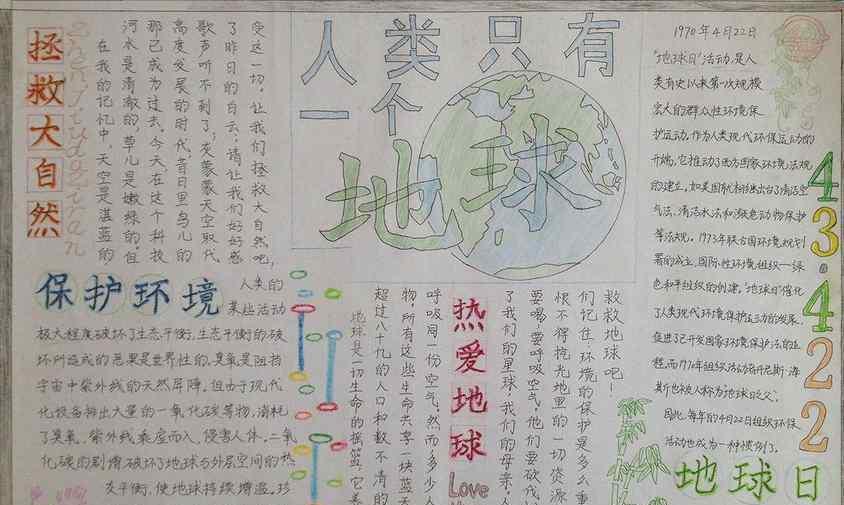 拯救大自然
Zhengjiudaziran
在我的记忆中,天空是湛蓝的
河水是清澈的,草儿是嫩绿的。但
那已成为过去。今天在这个科技
高度发展的时代,昔日里鸟儿的
歌声听不到了,灰蒙蒙天空取代
了昨日的白云,请让我们好好感
受这一切,让我们拯救大自然吧,
人类只有
一个
地球
保护环境
人类的
某些活动
极大程度破坏了生态平衡,生态平衡的破
坏所造成的恶果是世界性的,臭氧是阻挡
宇宙中紫外线的天然屏障,但由于现代
化设备排出大量的一氧化碳等物,消耗
了臭氧,紫外线乘虚而入,侵害人体,二氧
化碳的剧增破坏了地球与外层空间的热
交平衡,使地球持续增温,珍
地球是一切生命的摇篮,它养
超过八十九的人口和数不清的
物,所有这些生命共享一块蓝天
呼吸同一份空气,然而多少人
热爱地球
Love
了我们的星球,我们的母亲,人
要喝,要呼吸空气,他们要砍伐
恨不得挖光地里的一切资源
们记住:环境的保护是多么重
救救地球吧!
1970年4月22日
“地球日”活动,是人
类有史以来第一次规模
宏大的群众性环境保
护运动,作为人类现代环保运动的
开端,它推动了西方国家环境法规
的建立。如美国就相继出台了清洁空
气法、清洁水法和濒危动物保护
等法规。1973年联合国环境规划
署的成立,国际性环境组织——绿
色和平组织的创建。“地球日”催化
了人类现代环境保护运动的发展,
促进了已开发国家环境保护法的立
程,而1970年组织活动者丹尼斯·海
斯也被人称为“地球日之父”。
因此,每年的4月22日组织环保
活动也成为一种惯例了。
43.422
地球日